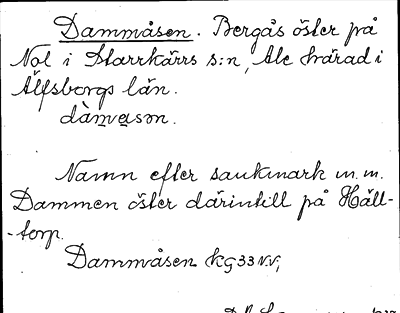 Dammåsen. Bergås öster på
Nol i Starrkärrs s:n, Ale härad i
Älfsborgs län.
dàmɐsɔn.
Namn efter sankmark m.m.
Dammen öster därintill på Häll-
-torp.
Dammåsen kg 33 N.V,